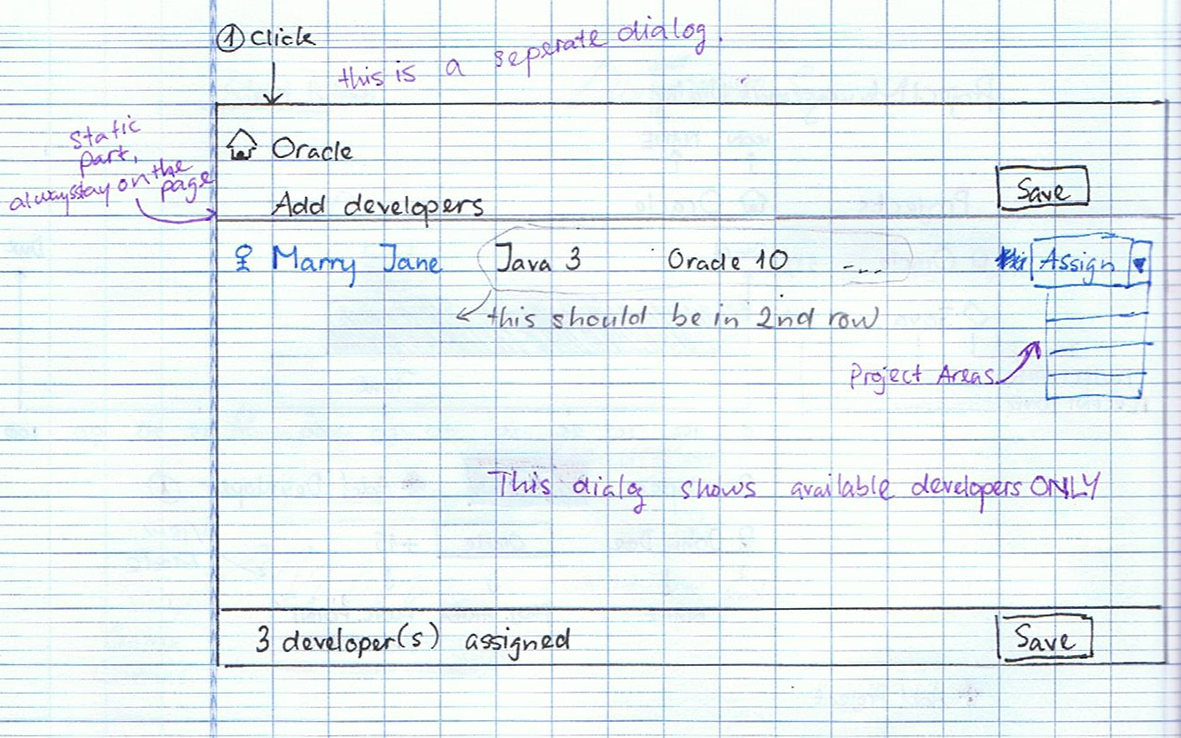 ① Click
this is a seperate dialog.
Static
part,
always stay on the
page
Oracle
Add developers
Save
Marry Jane Java 3 Oracle 10 ---
Assign
this should be in 2nd row
Project Areas
This dialog shows available developers ONLY
3 developer(s) assigned
Save